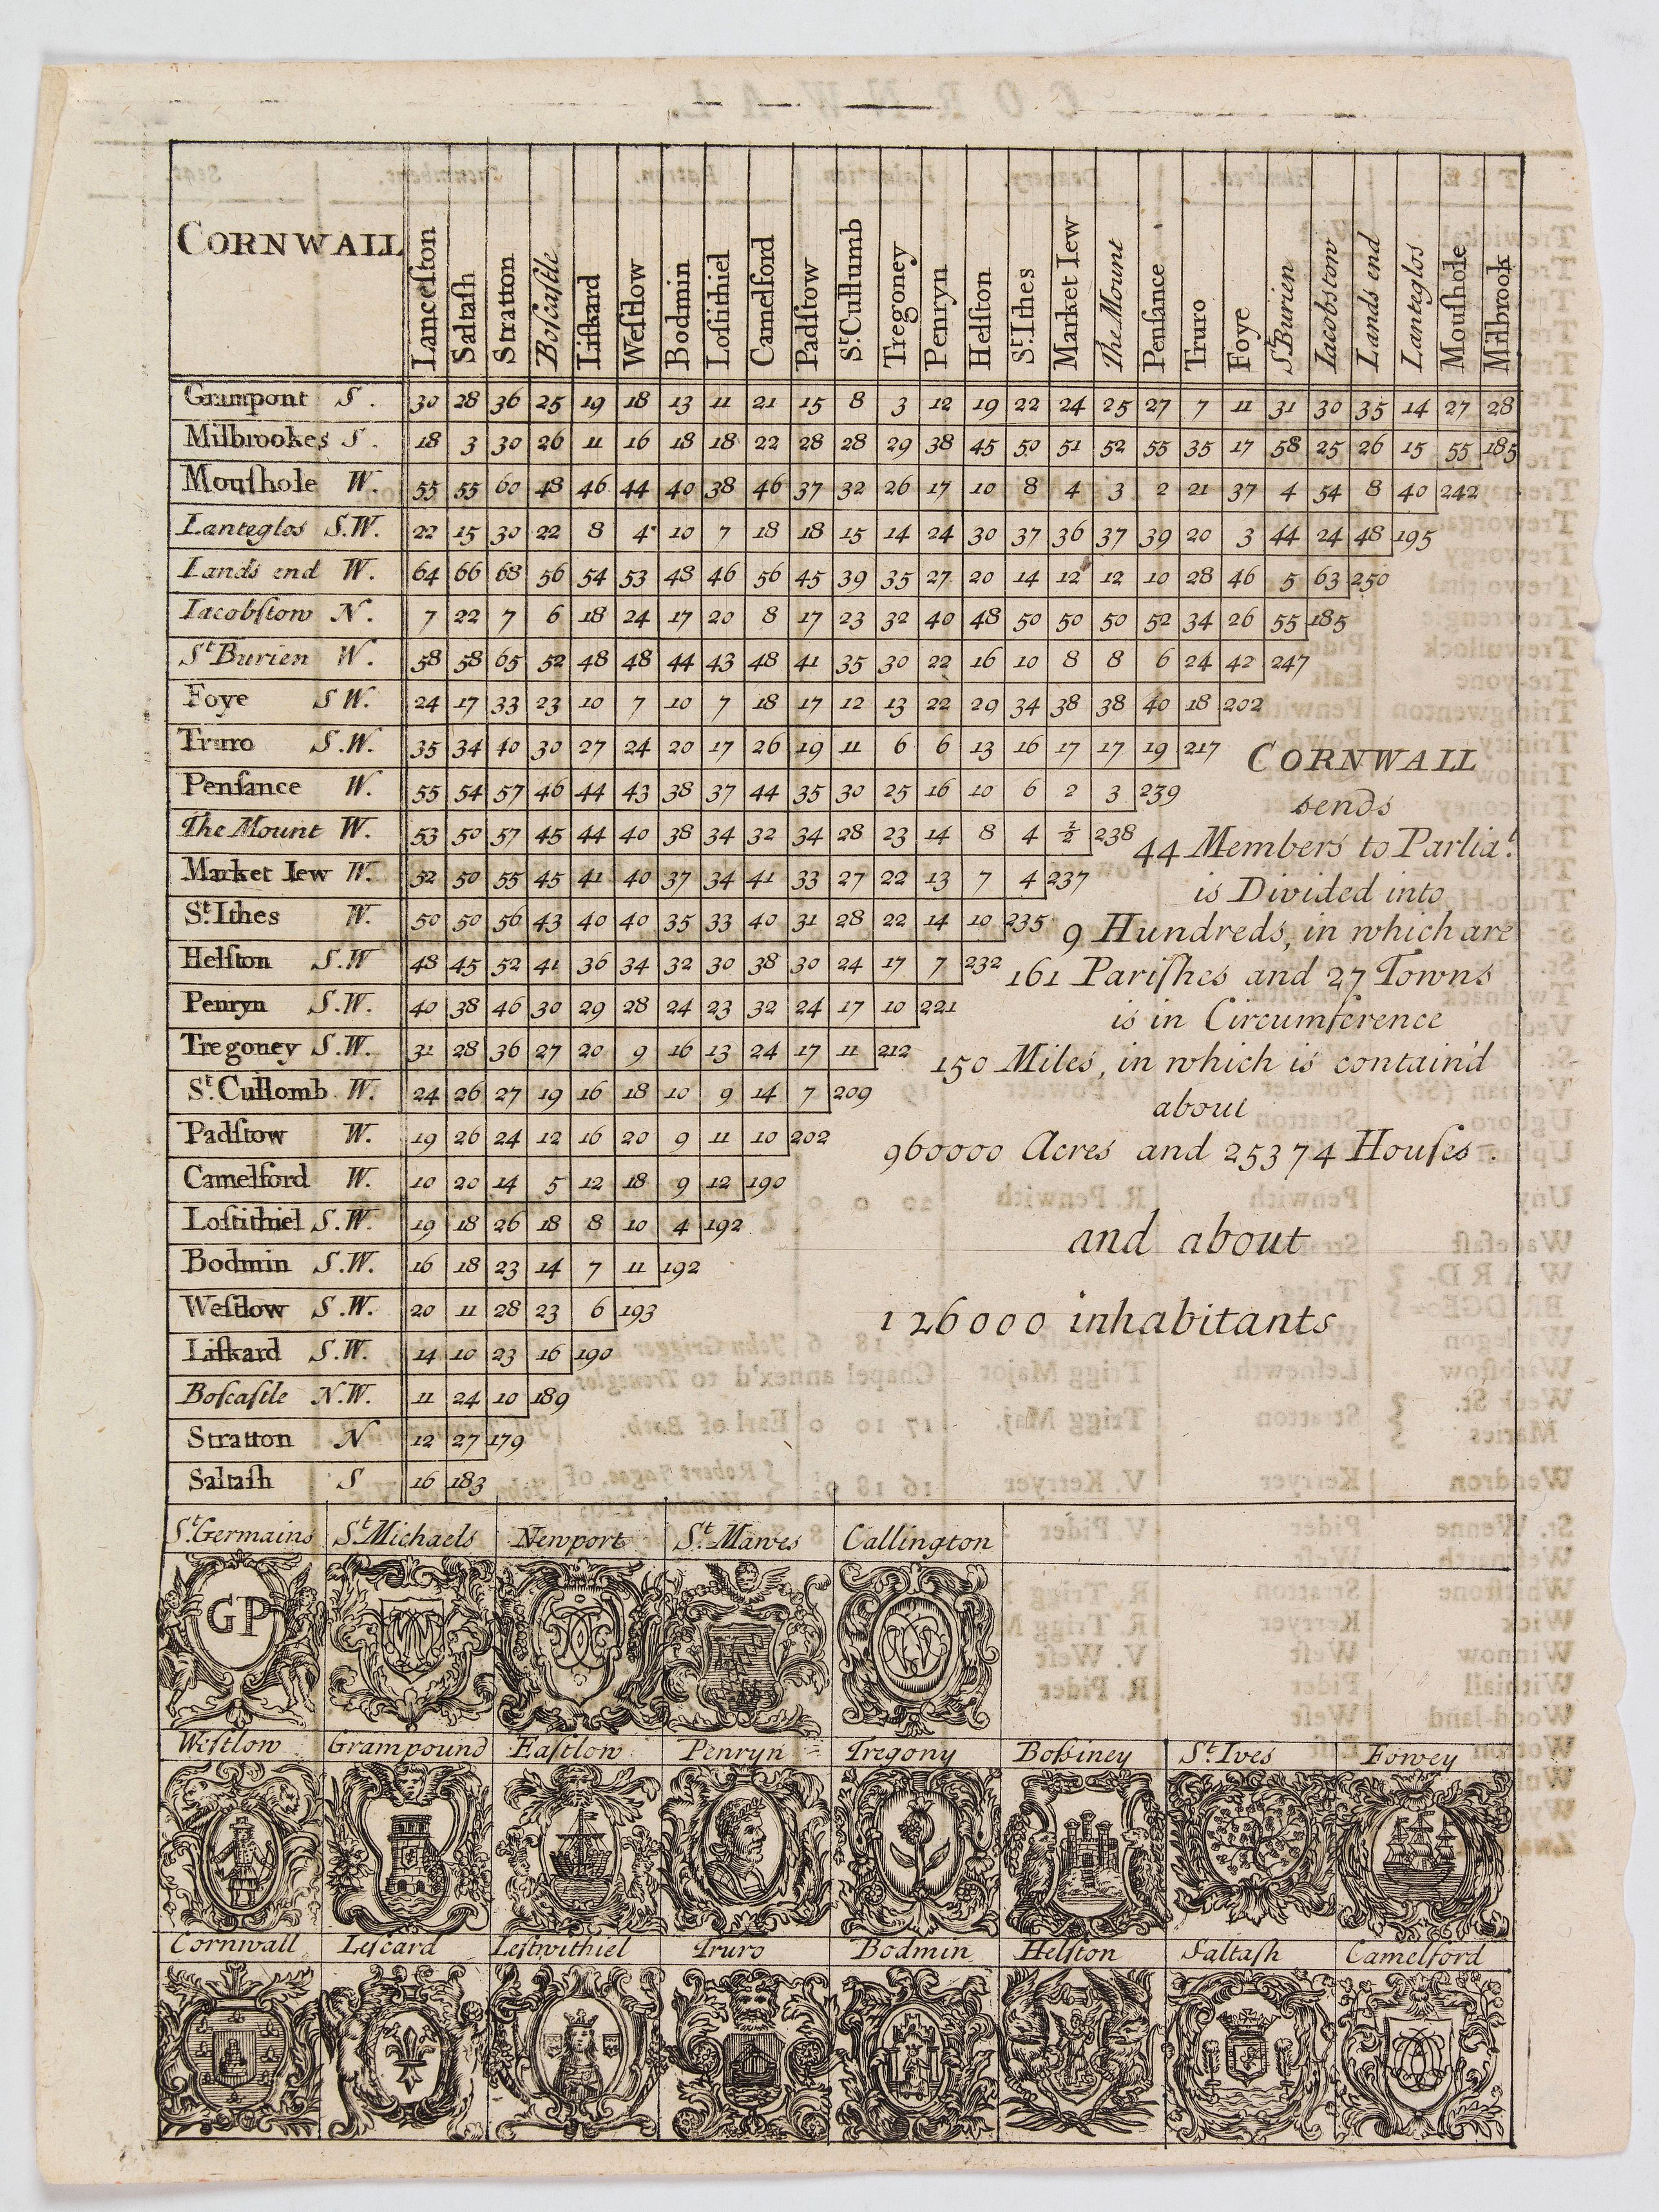 CORNWALL
Lanceſton Saltaſh Stratton Boſcaſtle Liſkard Weſtlow Bodmin Loſtithiel Camelford Padſtow St. Cullumb Tregoney Penryn Helſton St. Ithes Market Iew The Mount Penſance Truro Foye St. Burien Iacobſtow Lands end Lanteglos Mouſhole Milbrook
Grampont S. 30 28 36 25 19 18 13 11 21 15 8 3 12 19 22 24 25 27 7 11 31 30 35 14 27 28
Milbrookes S. 18 3 30 26 11 16 18 18 22 28 28 29 38 45 50 51 52 55 35 17 58 25 26 15 55 185
Mouſhole W. 55 55 60 48 46 44 40 38 46 37 32 26 17 10 8 4 3 2 21 37 4 54 8 40 242
Lanteglos S.W. 22 15 30 22 8 4 10 7 18 18 15 14 24 30 37 36 37 39 20 3 44 24 48 195
Lands end W. 64 66 68 56 54 53 48 46 56 45 39 35 27 20 14 12 12 10 28 46 5 63 250
Iacobſtow N. 7 22 7 6 18 24 17 20 8 17 23 32 40 48 50 50 50 52 34 26 55 185
St. Burien W. 58 58 65 52 48 48 44 43 48 41 35 30 22 16 10 8 8 6 24 42 247
Foye S W. 24 17 33 23 10 7 10 7 18 17 12 13 22 29 34 38 38 40 18 202
Truro S.W. 35 34 40 30 27 24 20 17 26 19 11 6 6 13 16 17 17 19 217
Penſance W. 55 54 57 46 44 43 38 37 44 35 30 25 16 10 6 2 3 239
The Mount W. 53 50 57 45 44 40 38 34 32 34 28 23 14 8 4 ½ 238
Market Iew W. 52 50 55 45 41 40 37 34 41 33 27 22 13 7 4 237
St. Ithes W. 50 50 56 43 40 40 35 33 40 31 28 22 14 10 235
Helſton S.W 48 45 52 41 36 34 32 30 38 30 24 17 7 232
Penryn S.W. 40 38 46 30 29 28 24 23 32 24 17 10 221
Tregoney S.W. 31 28 36 27 20 9 16 13 24 17 11 212
St. Cullomb W. 24 26 27 19 16 18 10 9 14 7 209
Padſtow W. 19 26 24 12 16 20 9 11 10 202
Camelford W. 10 20 14 5 12 18 9 12 190
Loſtithiel S.W. 19 18 26 18 8 10 4 192
Bodmin S.W. 16 18 23 14 7 11 192
Weſtlow S.W. 20 11 28 23 6 193
Liſkard S.W. 14 10 23 16 190
Boſcaſtle N.W. 11 24 10 189
Stratton N 12 27 179
Saltaſh S 16 183
CORNWALL
sends
44 Members to Parliat.
is Divided into
9 Hundreds, in which are
161 Pariſhes and 27 Towns
is in Circumference
150 Miles, in which is contain'd
about
960000 Acres and 25374 Houſes.
and about
126000 inhabitants
St. Germains St. Michaels Newport St. Mawes Callington
GP
Weſtlow Grampound Eaſtlow Penryn Tregony Boſsiney St. Ives Fowey
Cornwall Leſcard Leſtwithiel Truro Bodmin Helſton Saltaſh Camelford